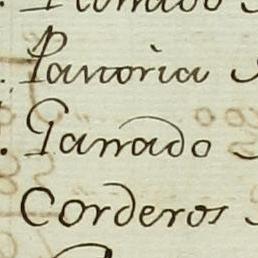 Pancoria
Ganado
Corderos